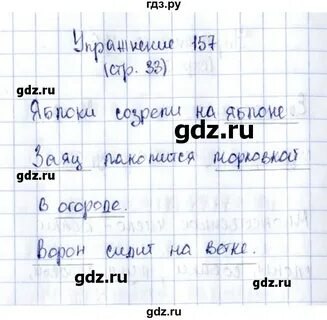 гдз.ру
Упражнение 157
(стр. 33)
gdz.ru
gdz.ru
Яблоки созрели на яблоне.
gdz.ru
gdz.ru
Заяц лакомится морковкой
gdz.ru
gdz.ru
в огороде.
Ворон сидит на ветке.
gdz.ru
gdz.ru